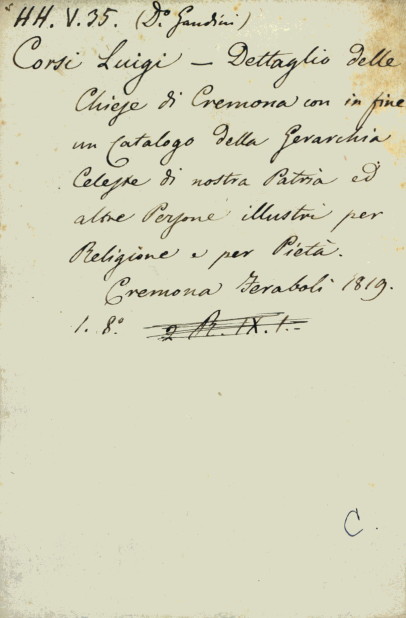 HH. V. 35. (Do. Gandini)
Corsi Luigi — Dettaglio delle
Chiese di Cremona con in fine
un Catalogo della Gerarchia
Celeste di nostra Patria ed
altre Persone illustri per
Religione e per Pietà.
Cremona Feraboli 1819.
1. 8° 2 R. IX. 1.-
C.